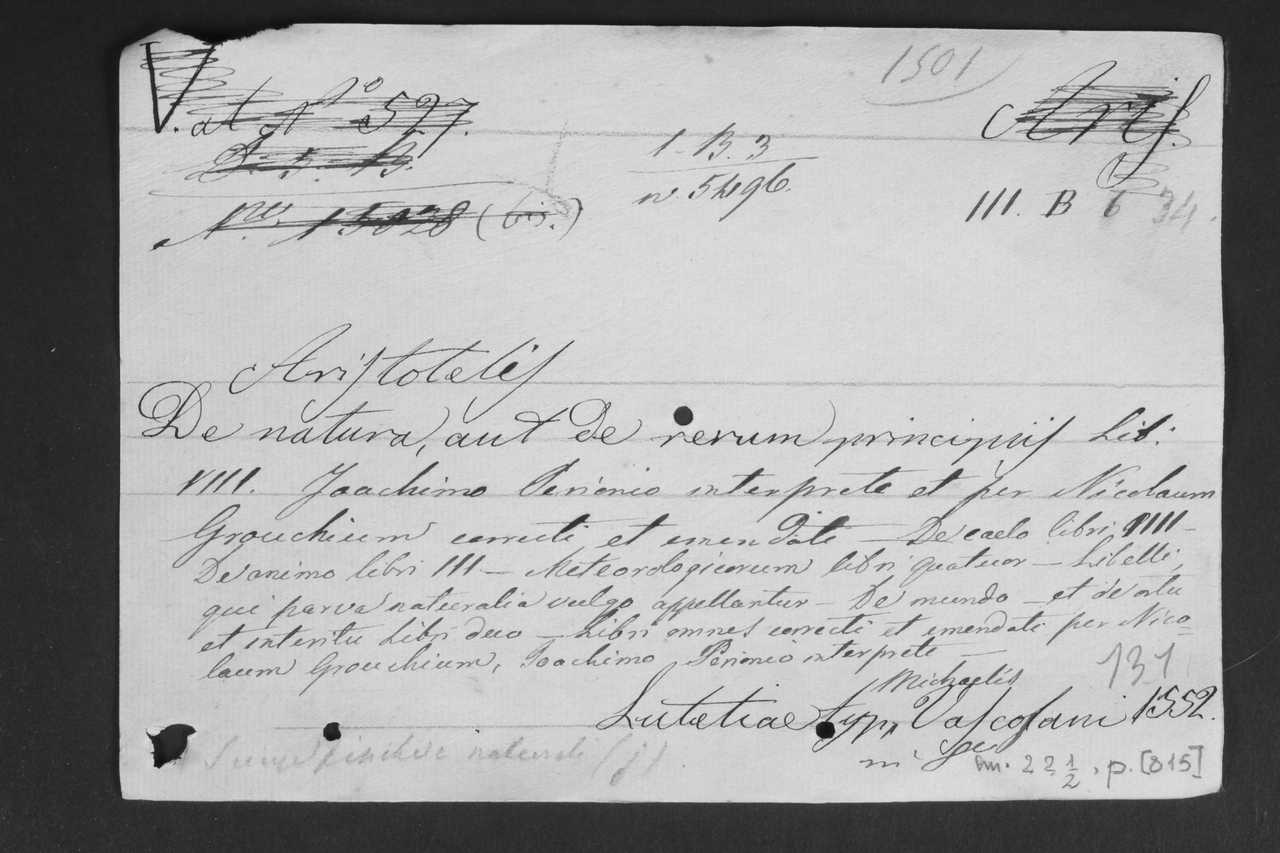 1501
V. at Nº 527.
Aris.
D. 5. B.
1-B. 3
nº 5496.
Nro. 15028 (bis.)
III. B 6 34.
Aristotelis
De natura, aut de rerum principiis Lib:
VIII. Joachimo Perionio interprete et per Nicolaum
Grouchium correcti et emendati — De caelo libri IIII —
De animo libri III — Meteorologicorum libri quatuor — Libelli,
qui parva naturalia vulgo appellantur — De mundo — et de ortu
et interitu Libri duo — Libri omnes correcti et emendati per Nico=
laum Grouchium, Joachimo Perionio interprete —
131
Michaelis
Lutetiae Typ, Vascosani 1552.
naturali (f)
22 1/2, p. [815]